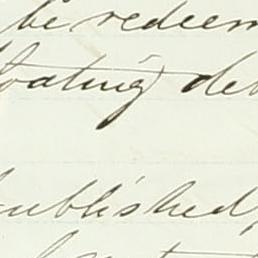 be redeem
oating deb
published,